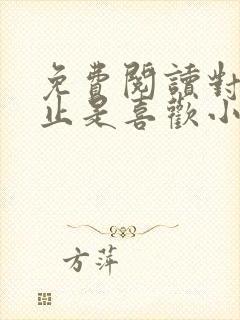 免費閱讀對
止是喜歡小
方萍